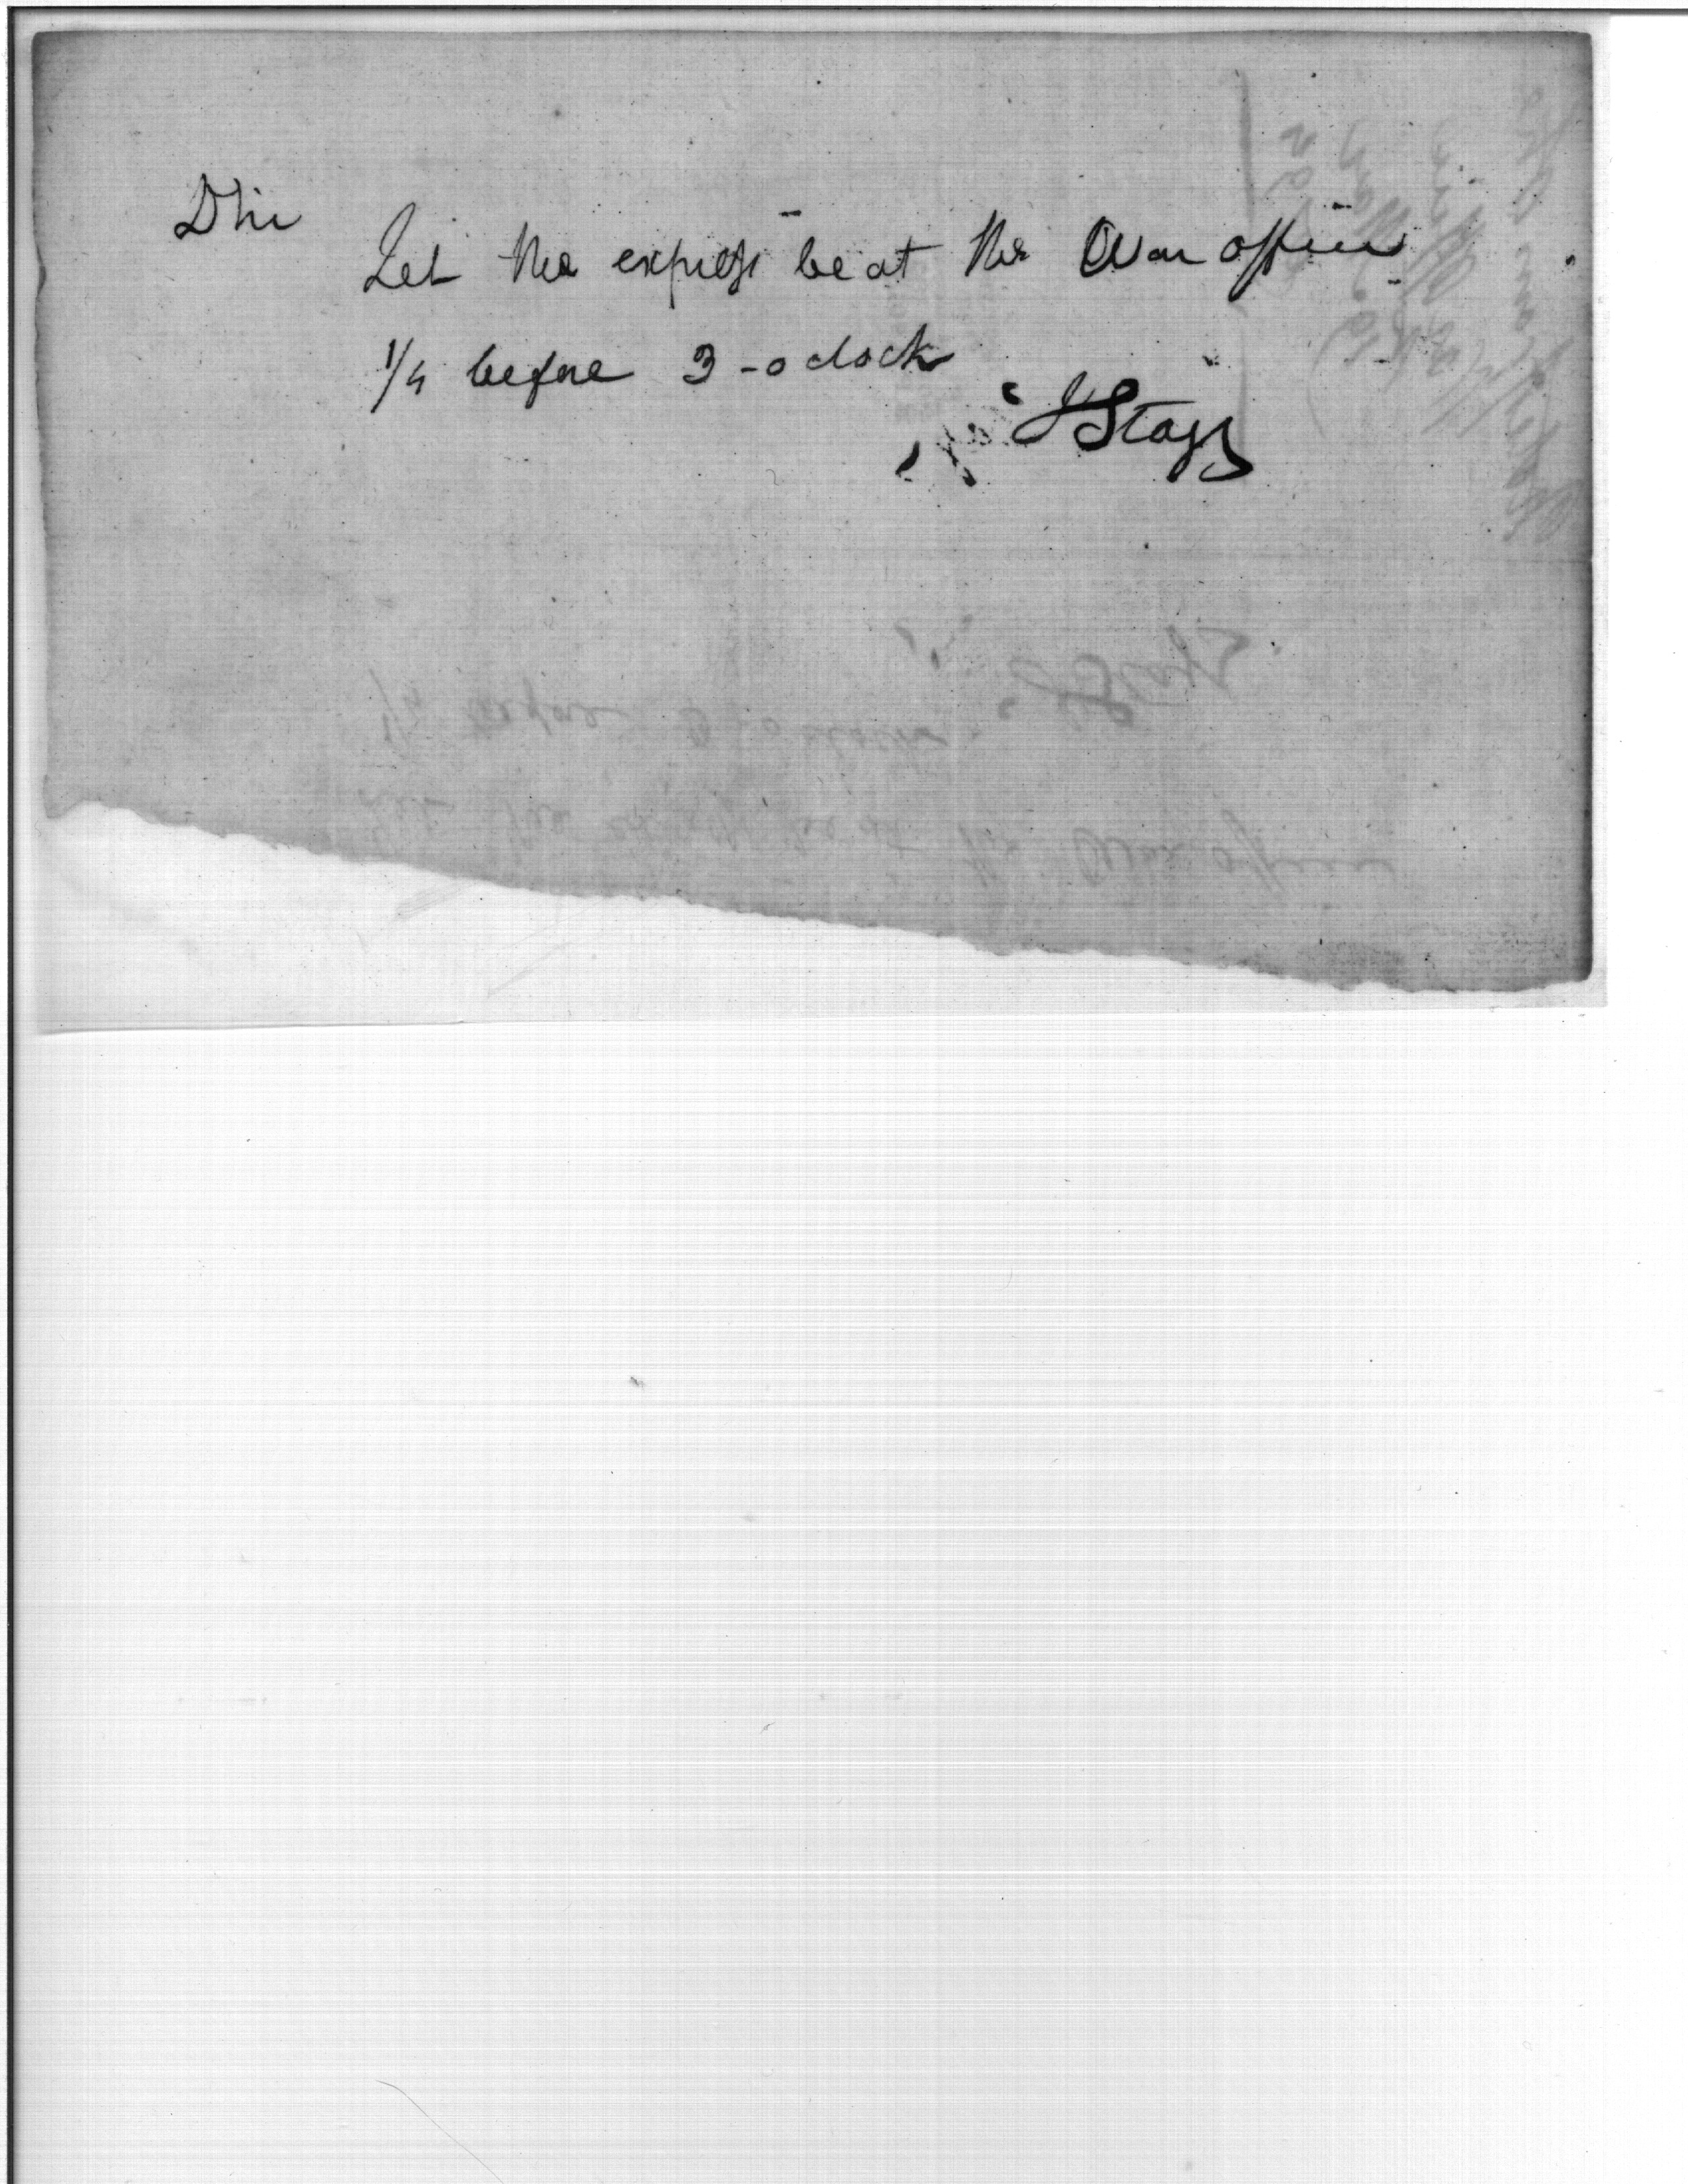 D Sir
Let the express be at the War office
1/4 before 3 - o clock
J Stagg